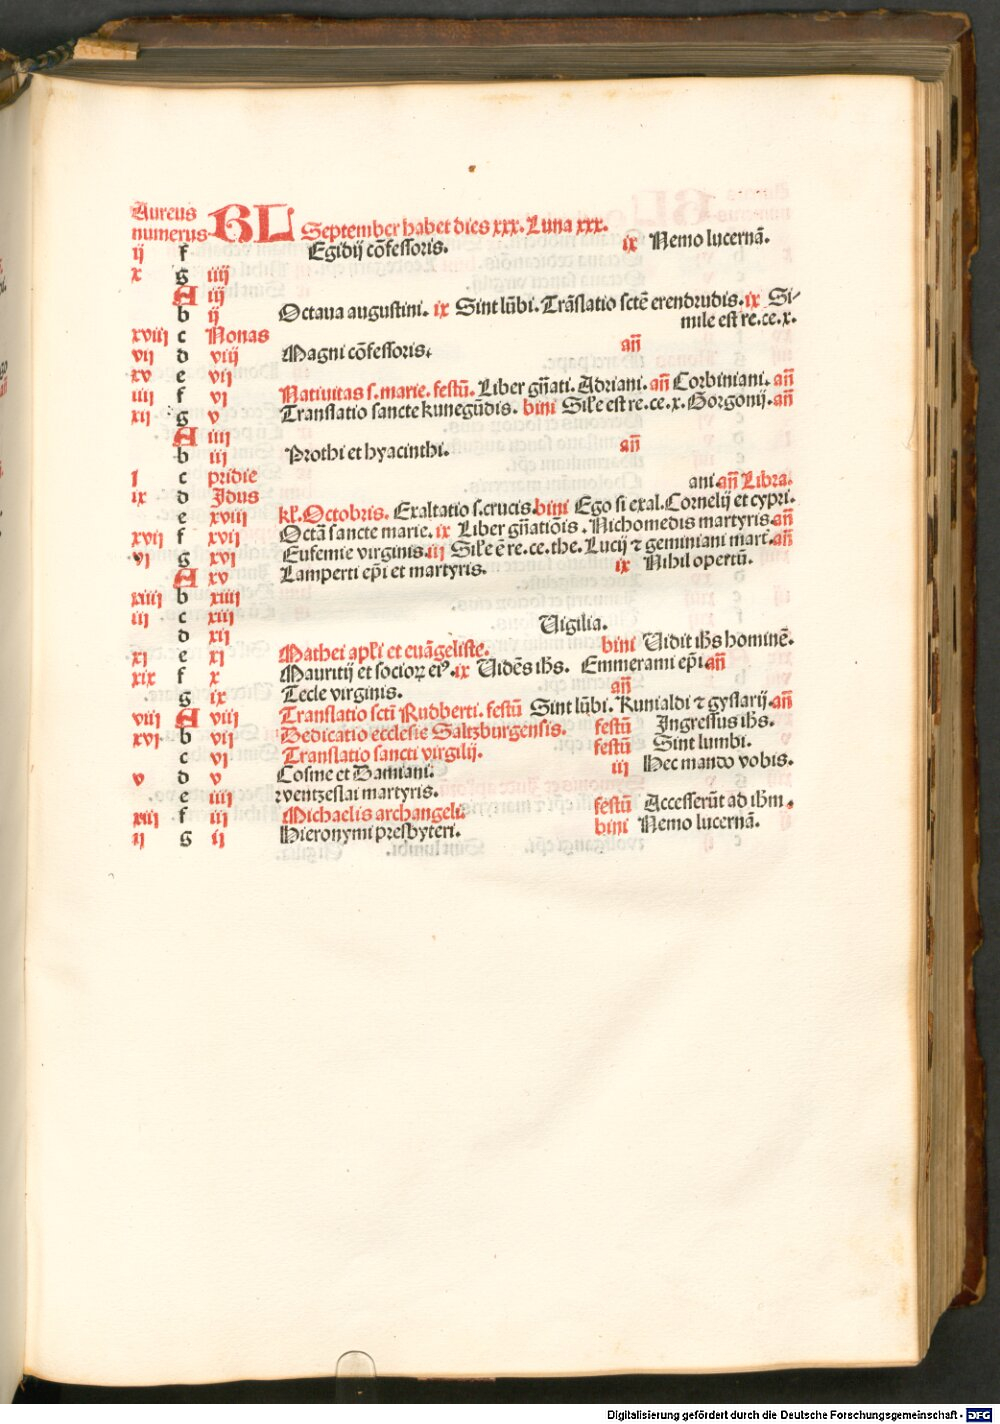 Aureus
numerus KL September habet dies xxx. Luna xxx.
ij f Egidij cōfessoris. ix Nemo lucernā.
x g iiij
A iij
b ij Octaua augustini. ix Sint lūbi. Trāslatio sctē erendrudis. ix Si-
mile est re. ce. x.
xviij c Nonas
vij d viij Magni cōfessoris. añ
xv e vij
iiij f vi Natiuitas s. marie. festū. Liber gñati. Adriani. añ Corbiniani. añ
xij g v Translatio sancte kunegūdis. bini Sil'e est re. ce. x. Gorgonij. añ
A iiij
b iij Prothi et hyacinthi. añ
j c pridie ani. añ Libra.
ix d Idus
e xviij kl. Octobris. Exaltatio s. crucis. bini Ego si exal. Cornelij et cypri.
xvij f xvij Octā sancte marie. ix Liber gñatiōis. Nichomedis martyris. añ
vi g xvi Eufemie virginis. iij Sil'e ē re. ce. the. Lucij ⁊ geminiani mart. añ
A xv Lamperti ep̄i et martyris. ix Nihil opertū.
xiiij b xiiij
iij c xiij
d xij Vigilia.
xi e xi Mathei apl'i et euāgeliste. bini Vidit ih̄s hominē.
xix f x Mauritij et socioꝝ eiꝰ. ix Vidēs ih̄s. Emmerami ep̄i. añ
g ix Tecle virginis. añ
viij A viij Translatio sctī Rudberti. festū Sint lūbi. Kunialdi ⁊ gyslarij. añ
xvi b vij Dedicatio ecclesie Saltzburgensis. festū Ingressus ih̄s.
c vi Translatio sancti virgilij. festū Sint lumbi.
v d v Cosme et Damiani. iij Hec mando vobis.
e iiij wentzeslai martyris.
xiij f iij Michaelis archangeli. festū Accesserūt ad ih̄m.
ij g ij Hieronymi presbyteri. bini Nemo lucernā.
Digitalisierung gefördert durch die Deutsche Forschungsgemeinschaft - DFG